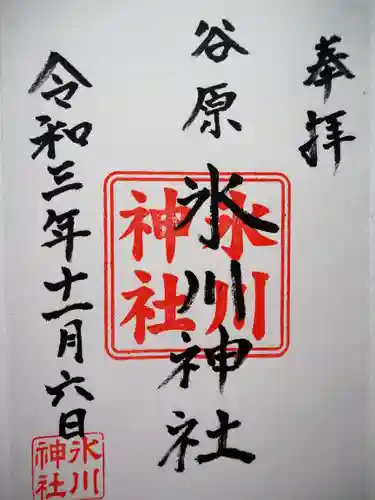 奉拝
谷原
氷川神社
氷川神社
令和三年十一月六日
氷川神社